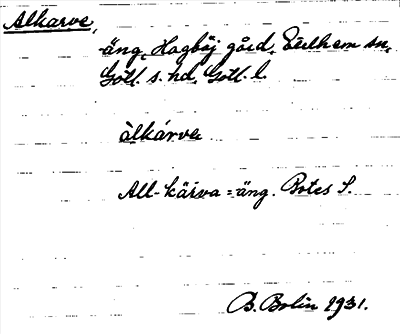 Alkarve,
äng, Hagbäj gård, Eulhem sn,
Gotl. s. hd, Gotl. l.
àlkárve
All-kärva = äng. Botes S.
B. Bolin 1931.